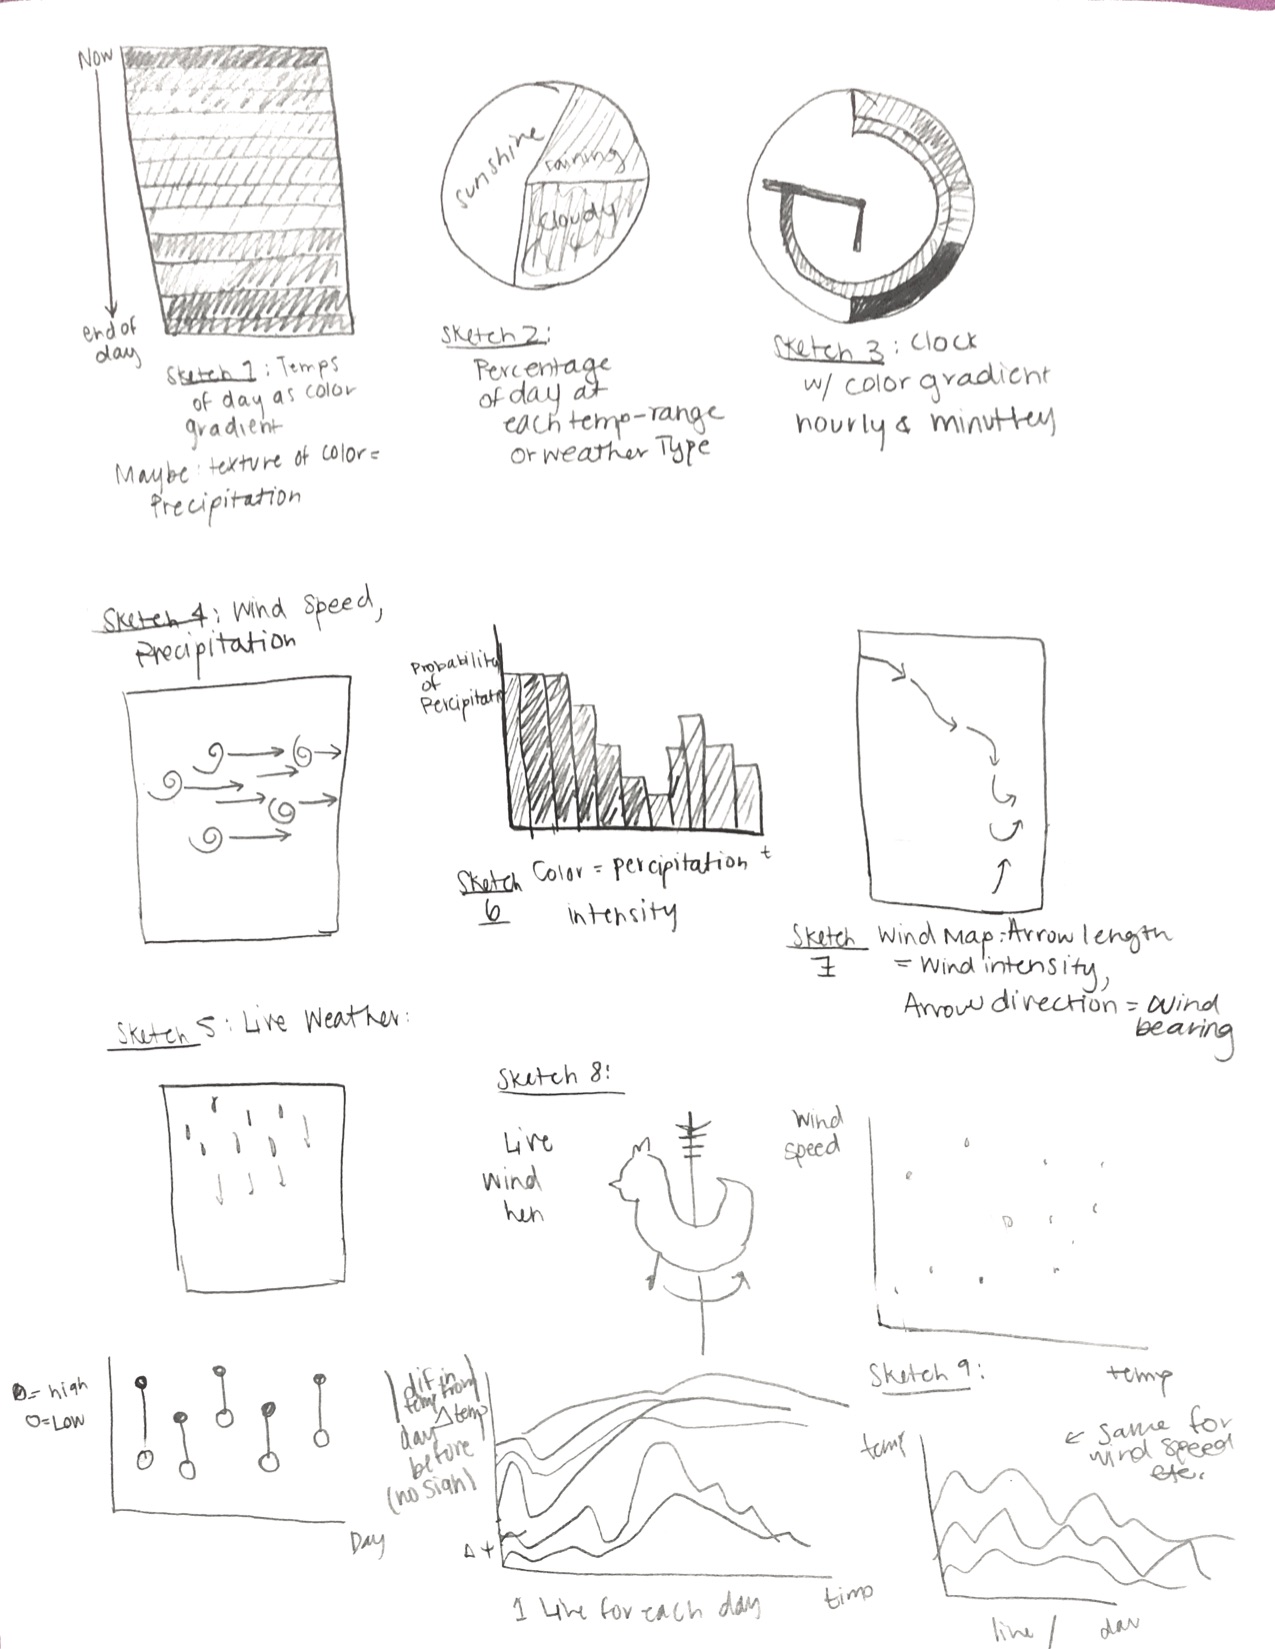 Now
end of
day
Sketch 1: Temps
of day as color
gradient
Maybe: texture of color =
Precipitation
sunshine
raining
cloudy
Sketch 2:
Percentage
of day at
each temp-range
or weather Type
Sketch 3: Clock
w/ color gradient
hourly & minuttey
Sketch 4: Wind Speed,
Precipitation
Probability
of
Percipitati
t
Sketch
6
Color = percipitation
intensity
Sketch
7
Wind Map: Arrow length
= Wind intensity,
Arrow direction = Wind
bearing
Sketch 5: Live Weather:
Sketch 8:
Live
Wind
hen
Wind
speed
temp
Sketch 9:
O= high
O=Low
Day
dif in
temp from
Δ temp
day
before
(no sign)
Δ t
time
1 Line for each day
temp
← same for
wind speed
etc.
line / day